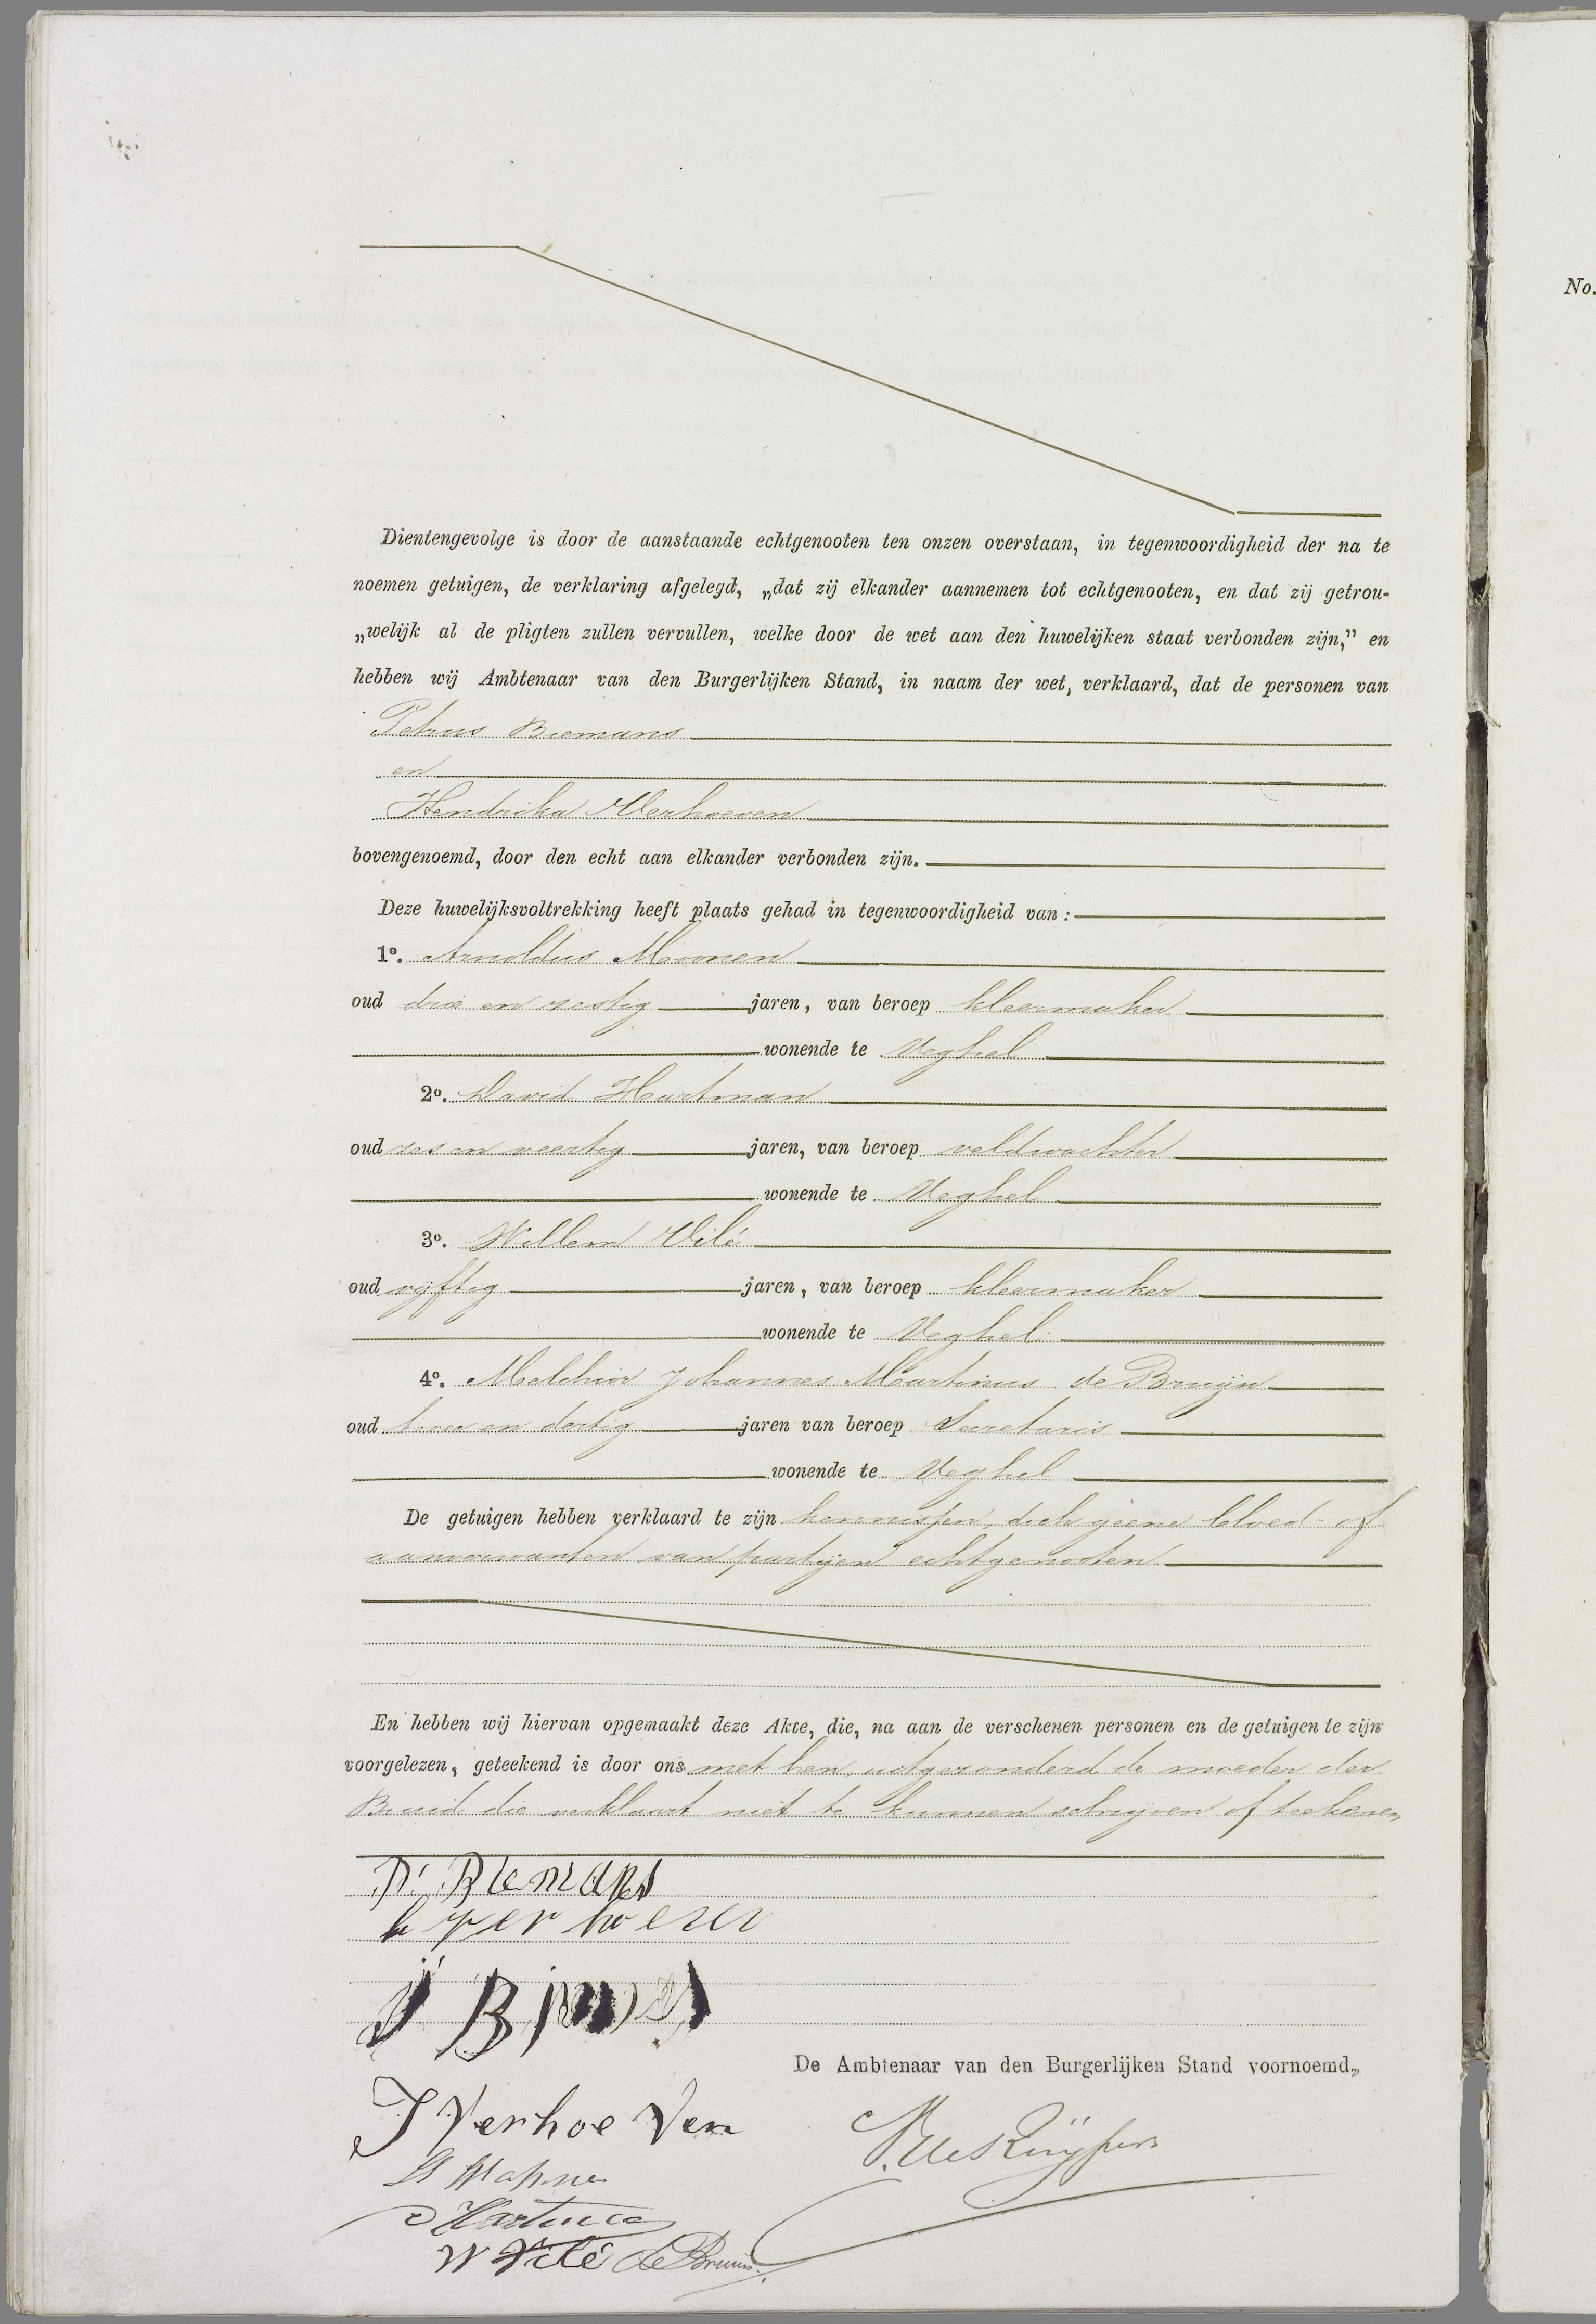 No.
Dientengevolge is door de aanstaande echtgenooten ten onzen overstaan, in tegenwoordigheid der na te
noemen getuigen, de verklaring afgelegd, „dat zij elkander aannemen tot echtgenooten, en dat zij getrou-
„welijk al de pligten zullen vervullen, welke door de wet aan den huwelijken staat verbonden zijn,” en
hebben wij Ambtenaar van den Burgerlijken Stand, in naam der wet, verklaard, dat de personen van
Petrus Biemans
en
Hendrika Verhoeven
bovengenoemd, door den echt aan elkander verbonden zijn.
Deze huwelijksvoltrekking heeft plaats gehad in tegenwoordigheid van:
1o. Arnoldus
oud drie en zestig jaren, van beroep kleermaker
wonende te Veghel
2o. David Hartman
oud zes en veertig jaren, van beroep veldwachter
wonende te Veghel
3o. Willem Vilé
oud vijftig jaren, van beroep kleermaker
wonende te Veghel
4o. Melchior Johannes Martinus de Bruijn
oud twee en dertig jaren van beroep Secretaris
wonende te Veghel
De getuigen hebben verklaard te zijn kennissen, doch geene bloed- of
aanverwanten van partijen echtgenooten.
En hebben wij hiervan opgemaakt deze Akte, die, na aan de verschenen personen en de getuigen te zijn
voorgelezen, geteekend is door ons met hen, uitgezonderd de moeder der
Bruid die verklaart niet te kunnen schrijven of teekenen,
P. Biemans
h verhoeven
De Ambtenaar van den Burgerlijken Stand voornoemd,
J Verhoeven
D Hartman
W Vilé de Bruijn